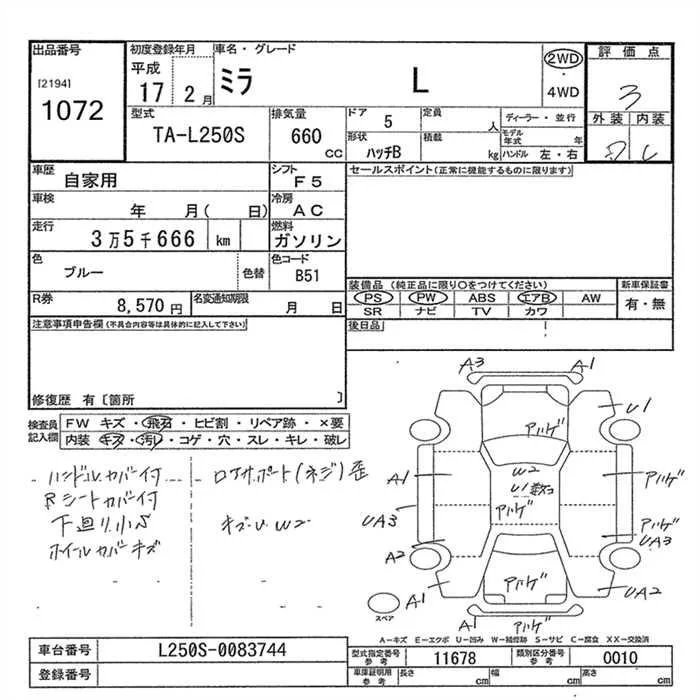 出品番号 初度登録年月 車名・グレード 評価点
[2194] 平成 ミラ L 2WD ・ 4WD 3
1072 17 2月
外装 内装
型式 排気量 ドア 5 定員 人 ディーラー・並行
TA-L250S 660 CC 形状 ハッチB 積載 kg モデル年式 年
ハンドル 左・右
車歴 自家用 シフト F5 セールスポイント(正常に機能するものに限ります)
車検 年 月( 日) 冷房 AC
走行 3万5千666 km 燃料 ガソリン
色 ブルー 色替 色コード B51
装備品 (純正品に限り○をつけてください) 新車保証書
R券 8,570円 名変通知期限 月 日 PS PW ABS エアB AW 有・無
SR ナビ TV カワ
注意事項申告欄(不具合内容等は具体的に記入して下さい) 後日品
修復歴 有〔箇所 〕
検査員 FW キズ・飛石・ヒビ割・リペア跡・×要
記入欄 内装 キズ・汚レ・コゲ・穴・スレ・キレ・破レ
ハンドルカバー付 ロアサポート(ネジ)歪
Rシートカバー付
下廻り小S キズ・U W2
ホイールカバーキズ
A3 A1
U1
アハゲ
W2
A1 U1 数コ アハゲ
アハゲ
UA3 アハゲ
UA3
A2
アハゲ UA2
A1 A1 アハゲ
スペア
A-キズ E-エクボ U-凹み W-補修跡 S-サビ C-腐食 XX-交換済
車台番号 L250S-0083744 型式指定番号 参考 11678 類別区分番号 参考 0010
登録番号 車庫証明用 参考 長さ cm 幅 cm 高さ cm